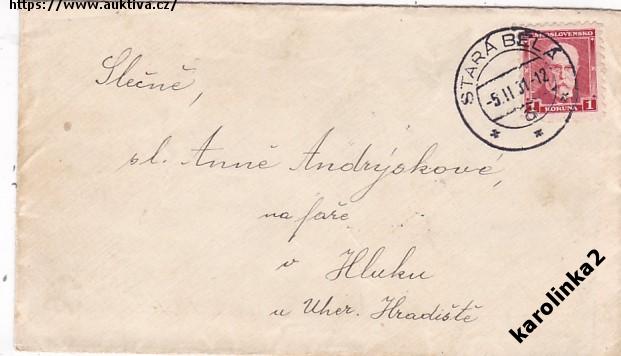 https://www.auktiva.cz/
Slečně,
sl. Anně Andrýskové,
na faře
v Hluku
u Uher. Hradiště
STARÁ BĚLÁ
-5.II 31.-12
ČESKOSLOVENSKO
1 KORUNA 1
karolinka2